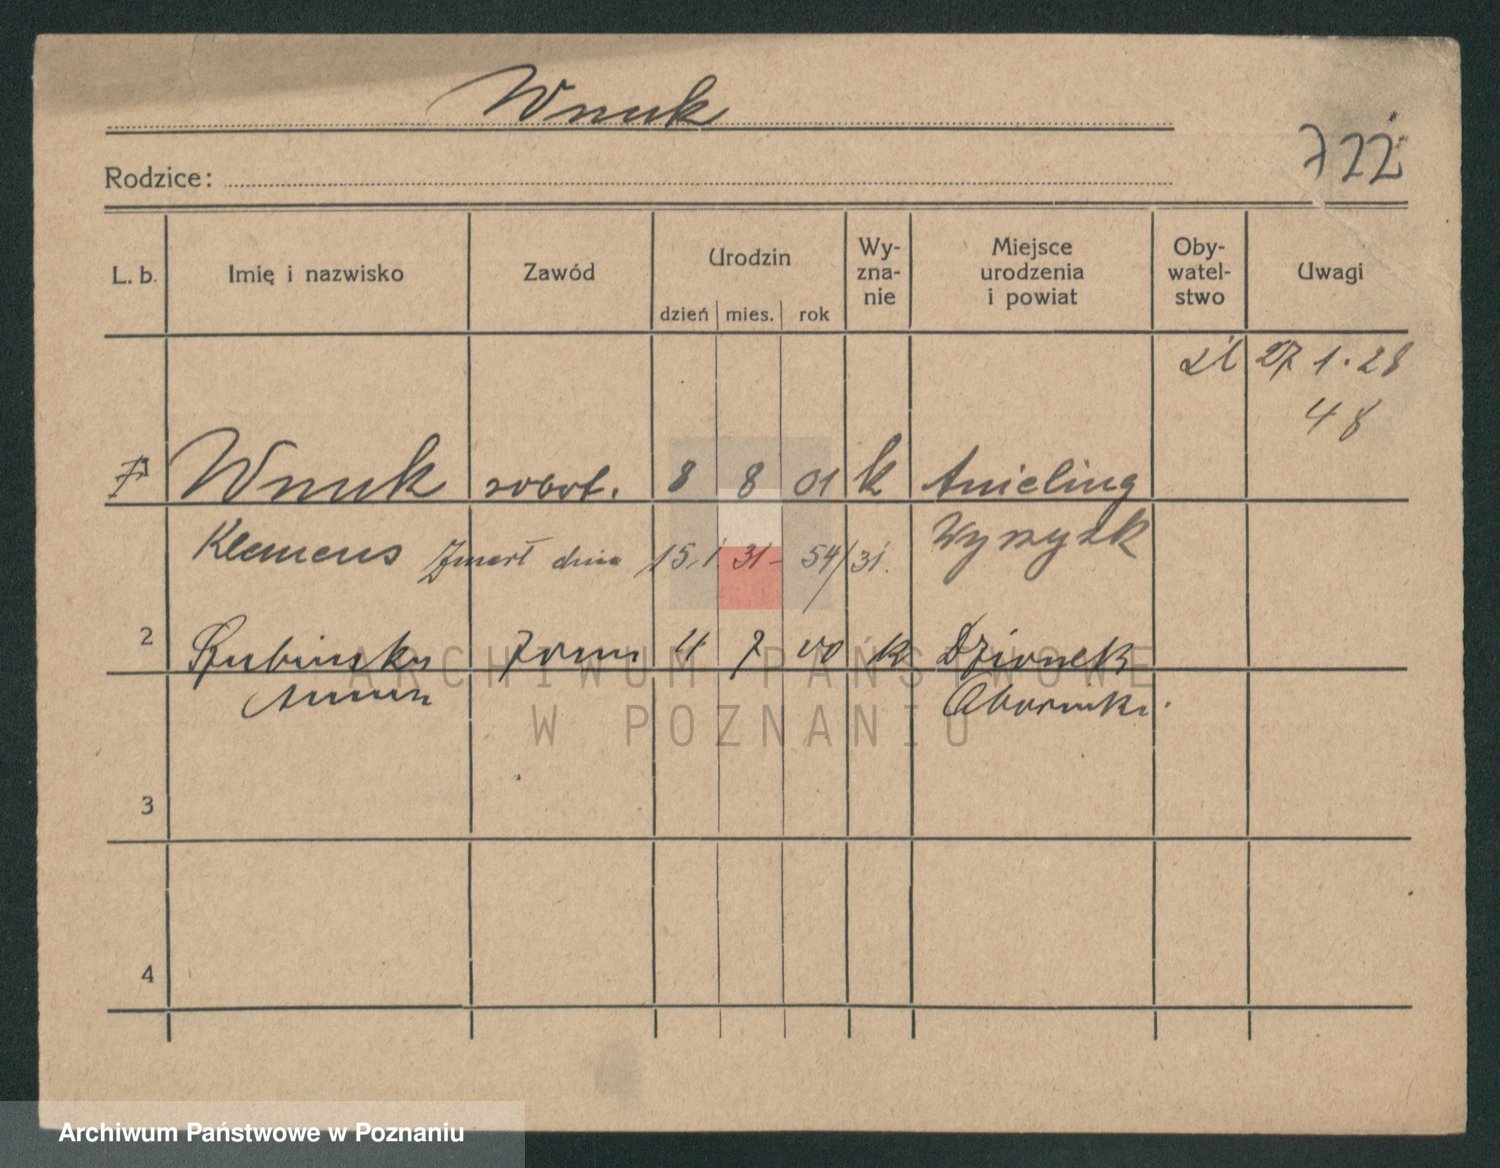 Wnuk
722
Rodzice:
L. b. Imię i nazwisko Zawód Urodzin Wy-zna-nie Miejsce urodzenia i powiat Oby-watel-stwo Uwagi
dzień mies. rok
27 1. 28
48
1 Wnuk robot. 8 8 01 k Anieliny
Klemens Zmarł dnia 15.1 31- 54/31. Wyrzysk
2 4 7 00 k
Anna Obornicki.
3
4
ARCHIWUM PAŃSTWOWE
W POZNANIU
Archiwum Państwowe w Poznaniu